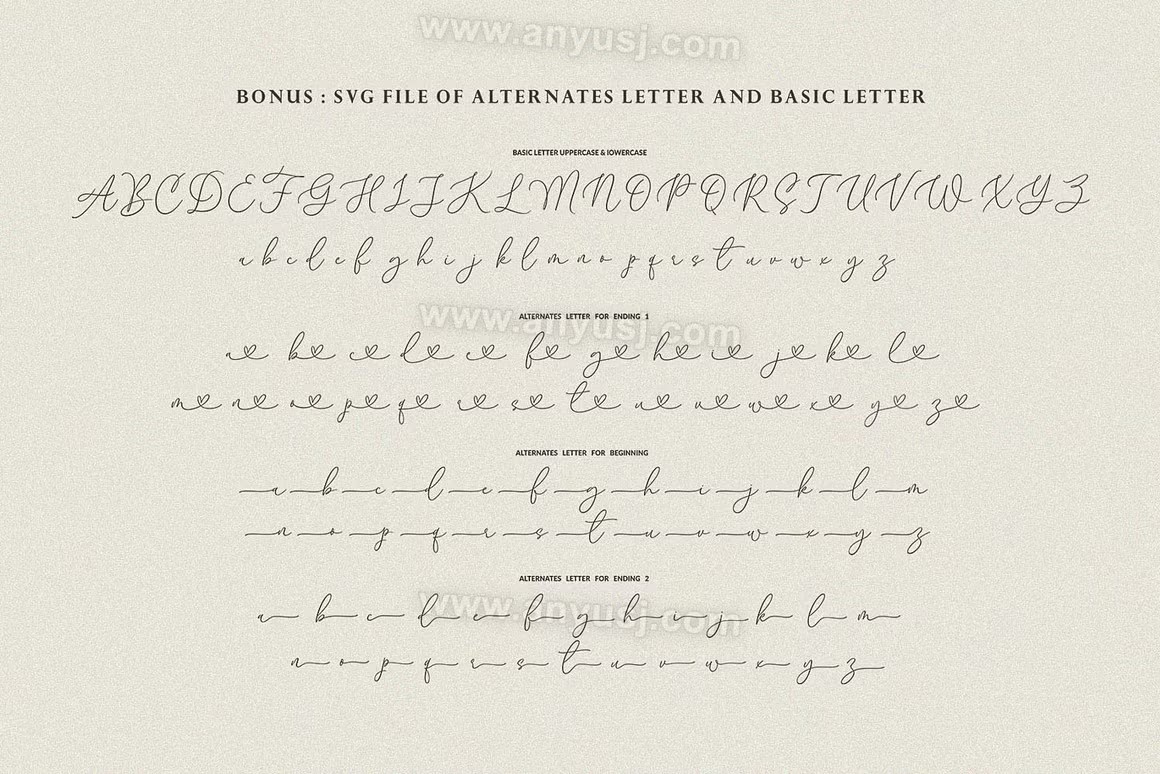 www.anyusj.com
BONUS : SVG FILE OF ALTERNATES LETTER AND BASIC LETTER
BASIC LETTER UPPERCASE & lOWERCASE
A B C D E F G H I J K L M N O P Q R S T U V W X Y Z
a b c d e f g h i j k l m n o p q r s t u v w x y z
www.anyusj.com
ALTERNATES LETTER FOR ENDING 1
a b c d e f g h i j k l
m n o p q r s t u v w x y z
ALTERNATES LETTER FOR BEGINNING
a b c d e f g h i j k l m
n o p q r s t u v w x y z
ALTERNATES LETTER FOR ENDING 2
www.anyusj.com
a b c d e f g h i j k l m
n o p q r s t u v w x y z